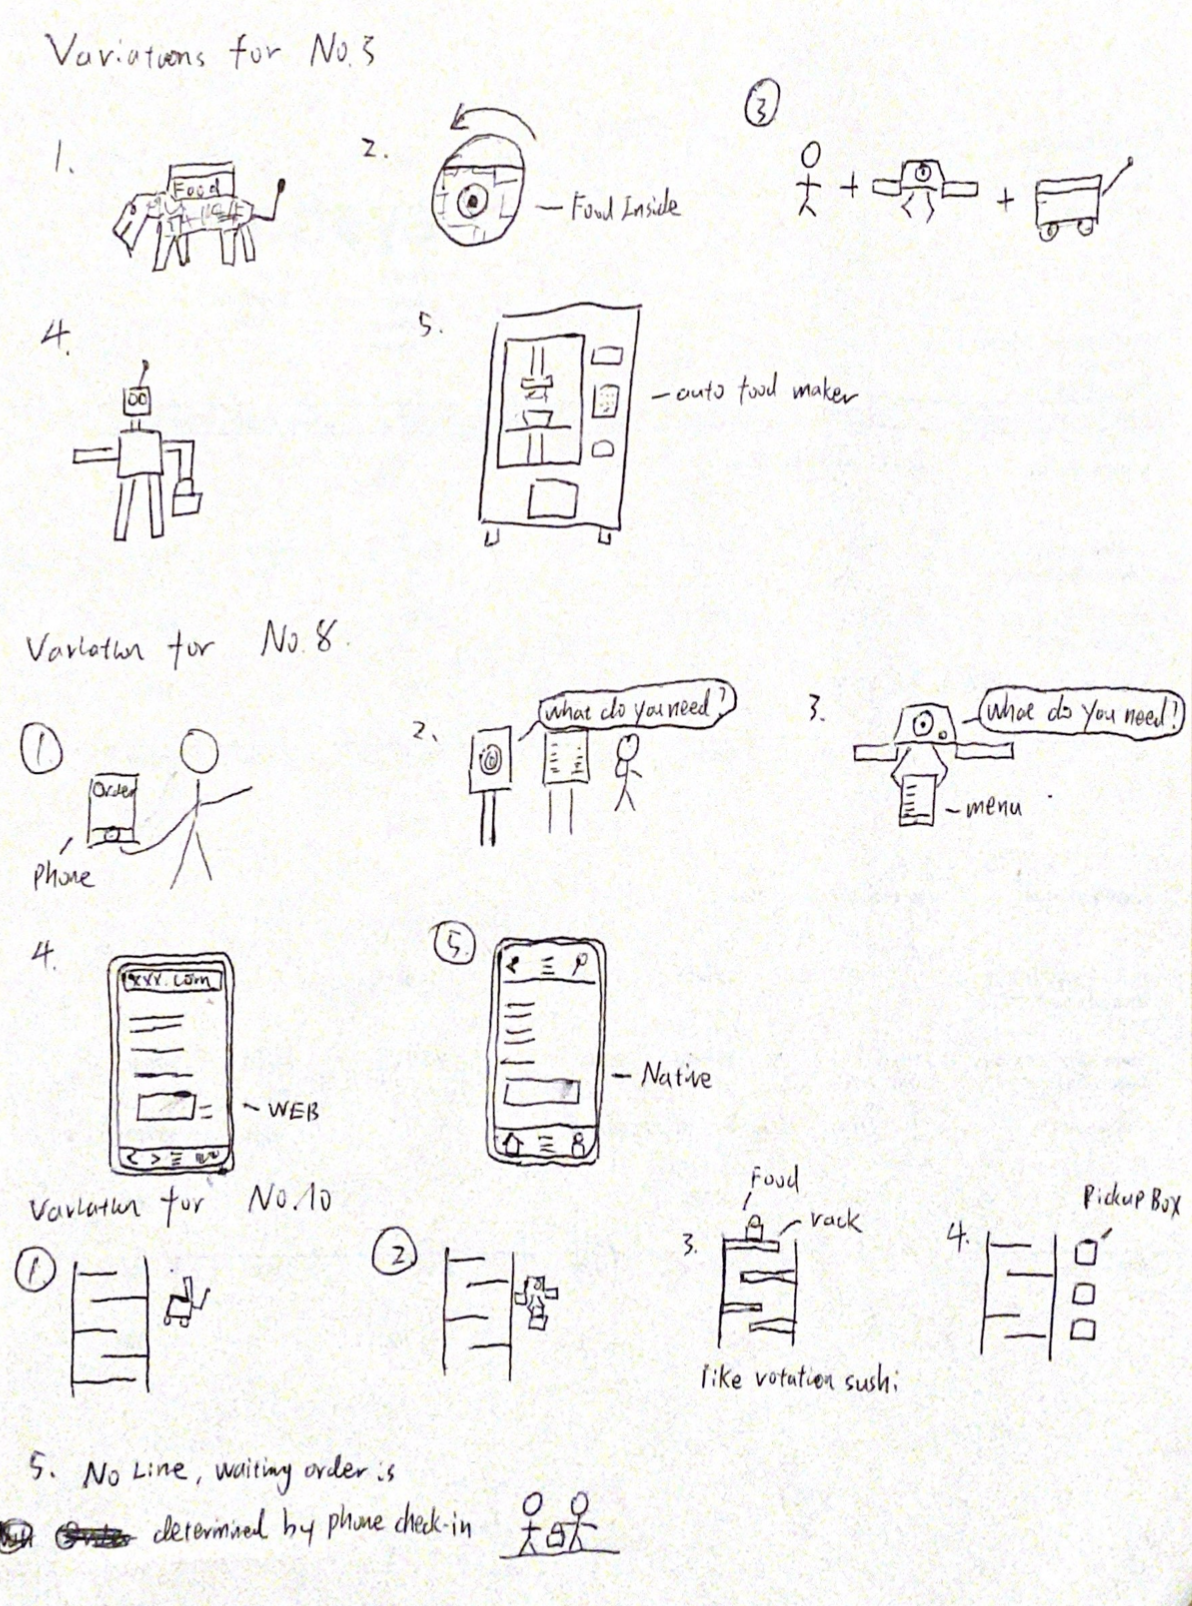 Variations for No.3
1.
Food
2.
Food Inside
3
+
+
4.
5.
auto food maker
Variation for No.8.
1.
Order
Phone
2.
What do you need?
3.
What do you need?
menu
4.
xxx.com
WEB
5.
Native
Variation for No.10
1
2
3.
Food
rack
like rotation sushi
4.
Pickup Box
5. No Line, waiting order is
determined by phone check-in